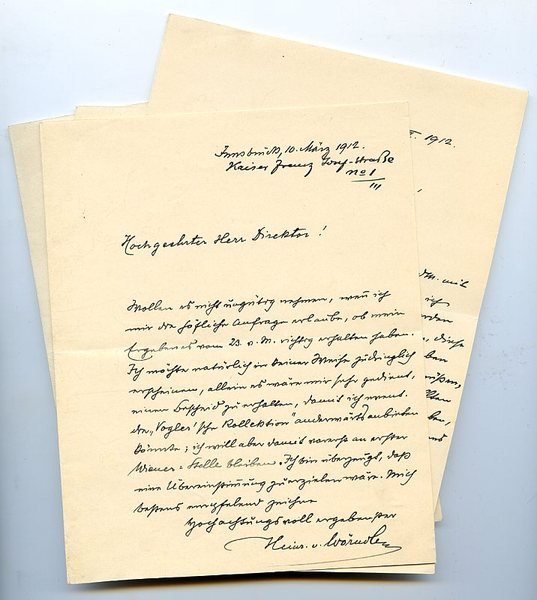 Innsbruck, 10. März 1912.
Kaiser Franz Josef-Straße
No 1
III
Hochgeehrter Herr Direktor!
Wollen es nicht ungütig nehmen, wenn ich
mir die höfliche Anfrage erlaube, ob mein
Ergebenes vom 23. v. M. richtig erhalten haben.
Ich möchte natürlich in keiner Weise zudringlich
erscheinen, allein es wäre mir sehr gedient,
einen Bescheid zu erhalten, damit ich event.
die „Vogler'sche Kollektion" anderwärts anbieten
könnte; ich will aber damit vorerst an erster
Wiener-Stelle bleiben. Ich bin überzeugt, daß
eine Übereinstimmung zu erzielen wäre. Mich
bestens empfehlend zeichne
hochachtungsvoll ergebenster
Heinr. v. Wörndle
1912.
mit
ich
diese
ben